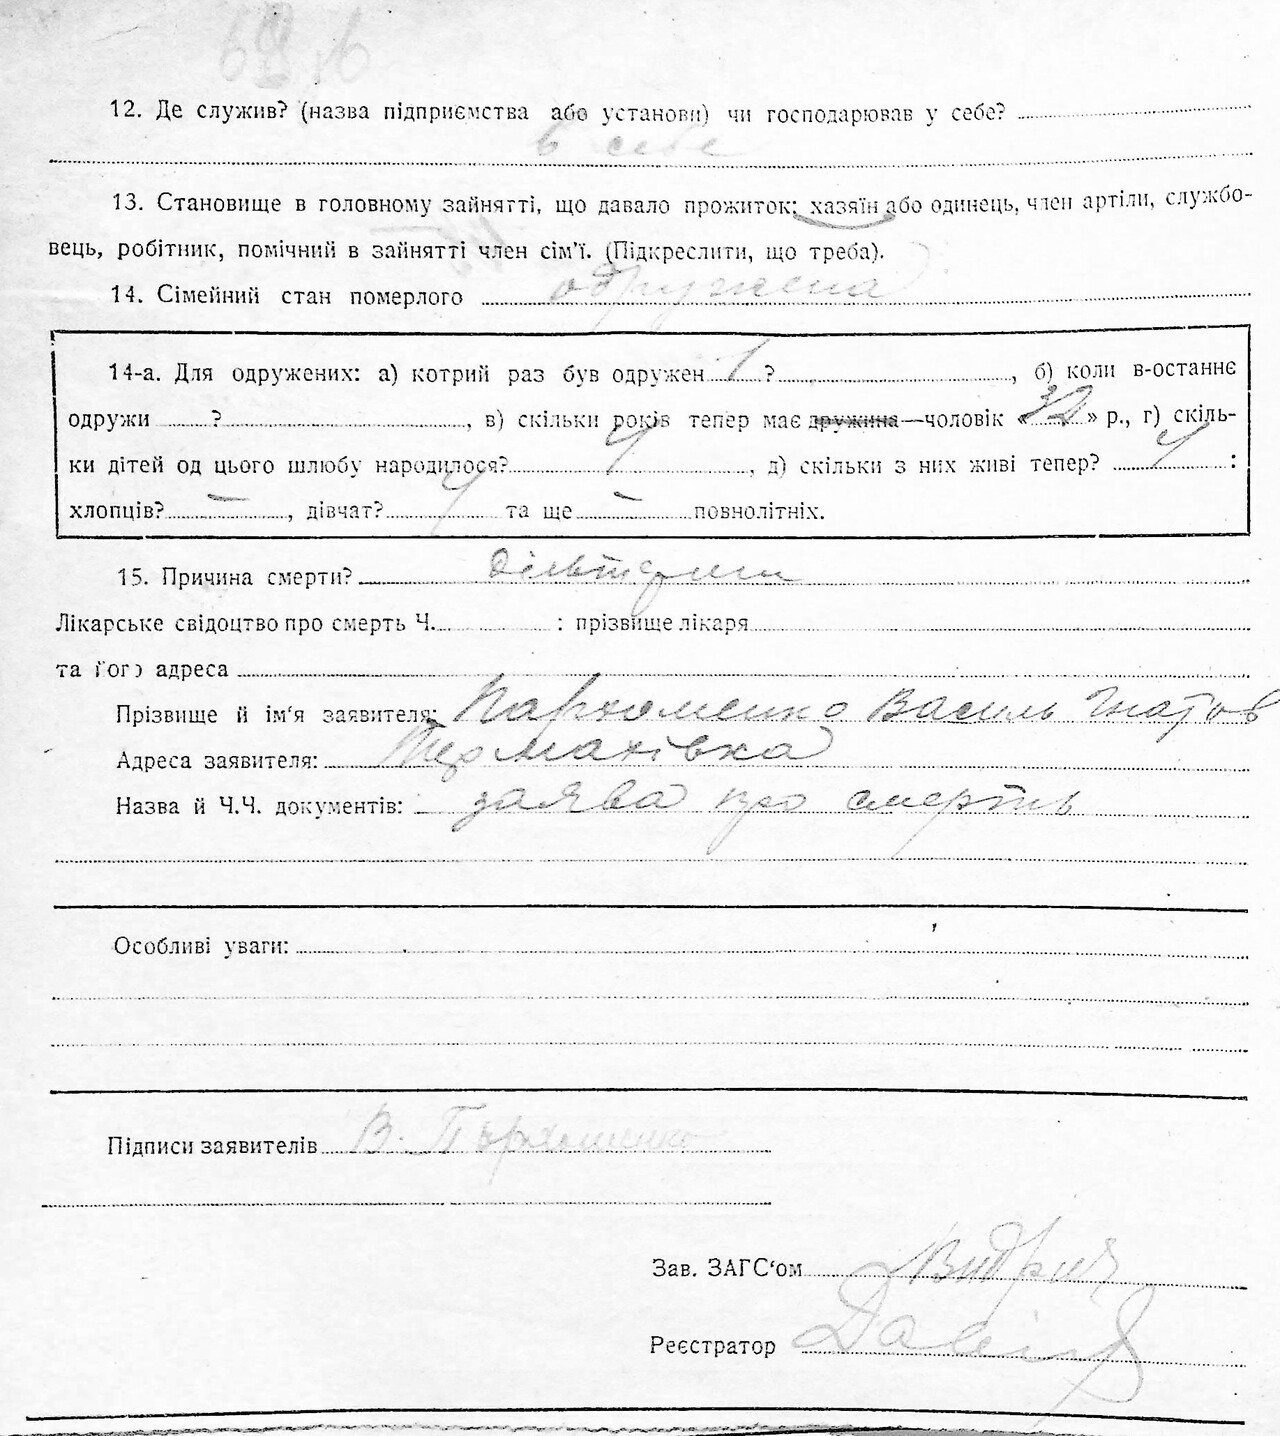 12. Де служив? (назва підприємства або установи) чи господарював у себе?
в себе
13. Становище в головному зайнятті, що давало прожиток: хазяїн або одинець, член артіли, службо-
вець, робітник, помічний в зайнятті член сім'ї. (Підкреслити, що треба).
14. Сімейний стан померлого одружена
14-а. Для одружених: а) котрий раз був одружен 1 ?, б) коли в-останнє
одружи ?, в) скільки років тепер має дружина—чоловік «32» р., г) скіль-
ки дітей од цього шлюбу народилося? 4, д) скільки з них живі тепер? 4 :
хлопців? –, дівчат? 4 та ще – повнолітніх.
15. Причина смерти?
Лікарське свідоцтво про смерть Ч. : прізвище лікаря
та його адреса
Прізвище й ім'я заявителя: Пархоменко Василь Гнатов
Адреса заявителя: Томаківка
Назва й Ч.Ч. документів: заява про смерть
Особливі уваги:
Підписи заявителів В. Пархоменко
Зав. ЗАГС'ом
Реєстратор